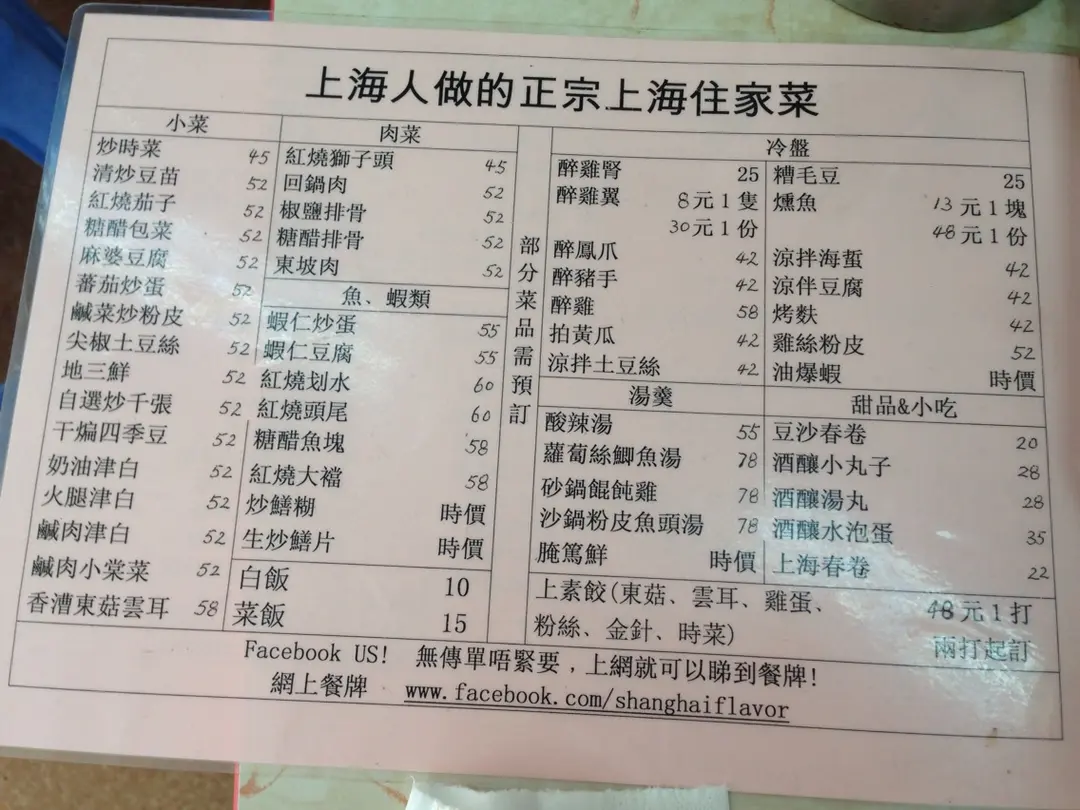 上海人做的正宗上海住家菜
小菜
炒時菜 45
清炒豆苗 52
紅燒茄子 52
糖醋包菜 52
麻婆豆腐 52
蕃茄炒蛋 52
鹹菜炒粉皮 52
尖椒土豆絲 52
地三鮮 52
自選炒千張 52
干煸四季豆 52
奶油津白 52
火腿津白 52
鹹肉津白 52
鹹肉小棠菜 52
香漕東菇雲耳 58
肉菜
紅燒獅子頭 45
回鍋肉 52
椒鹽排骨 52
糖醋排骨 52
東坡肉 52
魚、蝦類
蝦仁炒蛋 55
蝦仁豆腐 55
紅燒划水 60
紅燒頭尾 60
糖醋魚塊 58
紅燒大襠 58
炒鱔糊 時價
生炒鱔片 時價
白飯 10
菜飯 15
部分菜品需預訂
冷盤
醉雞腎 25
醉雞翼 8元1隻
30元1份
醉鳳爪 42
醉豬手 42
醉雞 58
拍黃瓜 42
涼拌土豆絲 42
糟毛豆 25
燻魚 13元1塊
48元1份
涼拌海蜇 42
涼伴豆腐 42
烤麩 42
雞絲粉皮 52
油爆蝦 時價
湯羹
酸辣湯 55
蘿蔔絲鯽魚湯 78
砂鍋餛飩雞 78
沙鍋粉皮魚頭湯 78
腌篤鮮 時價
甜品&小吃
豆沙春卷 20
酒釀小丸子 28
酒釀湯丸 28
酒釀水泡蛋 35
上海春卷 22
上素餃(東菇、雲耳、雞蛋、 48元1打
粉絲、金針、時菜) 兩打起訂
Facebook US! 無傳單唔緊要，上網就可以睇到餐牌!
網上餐牌 www.facebook.com/shanghaiflavor